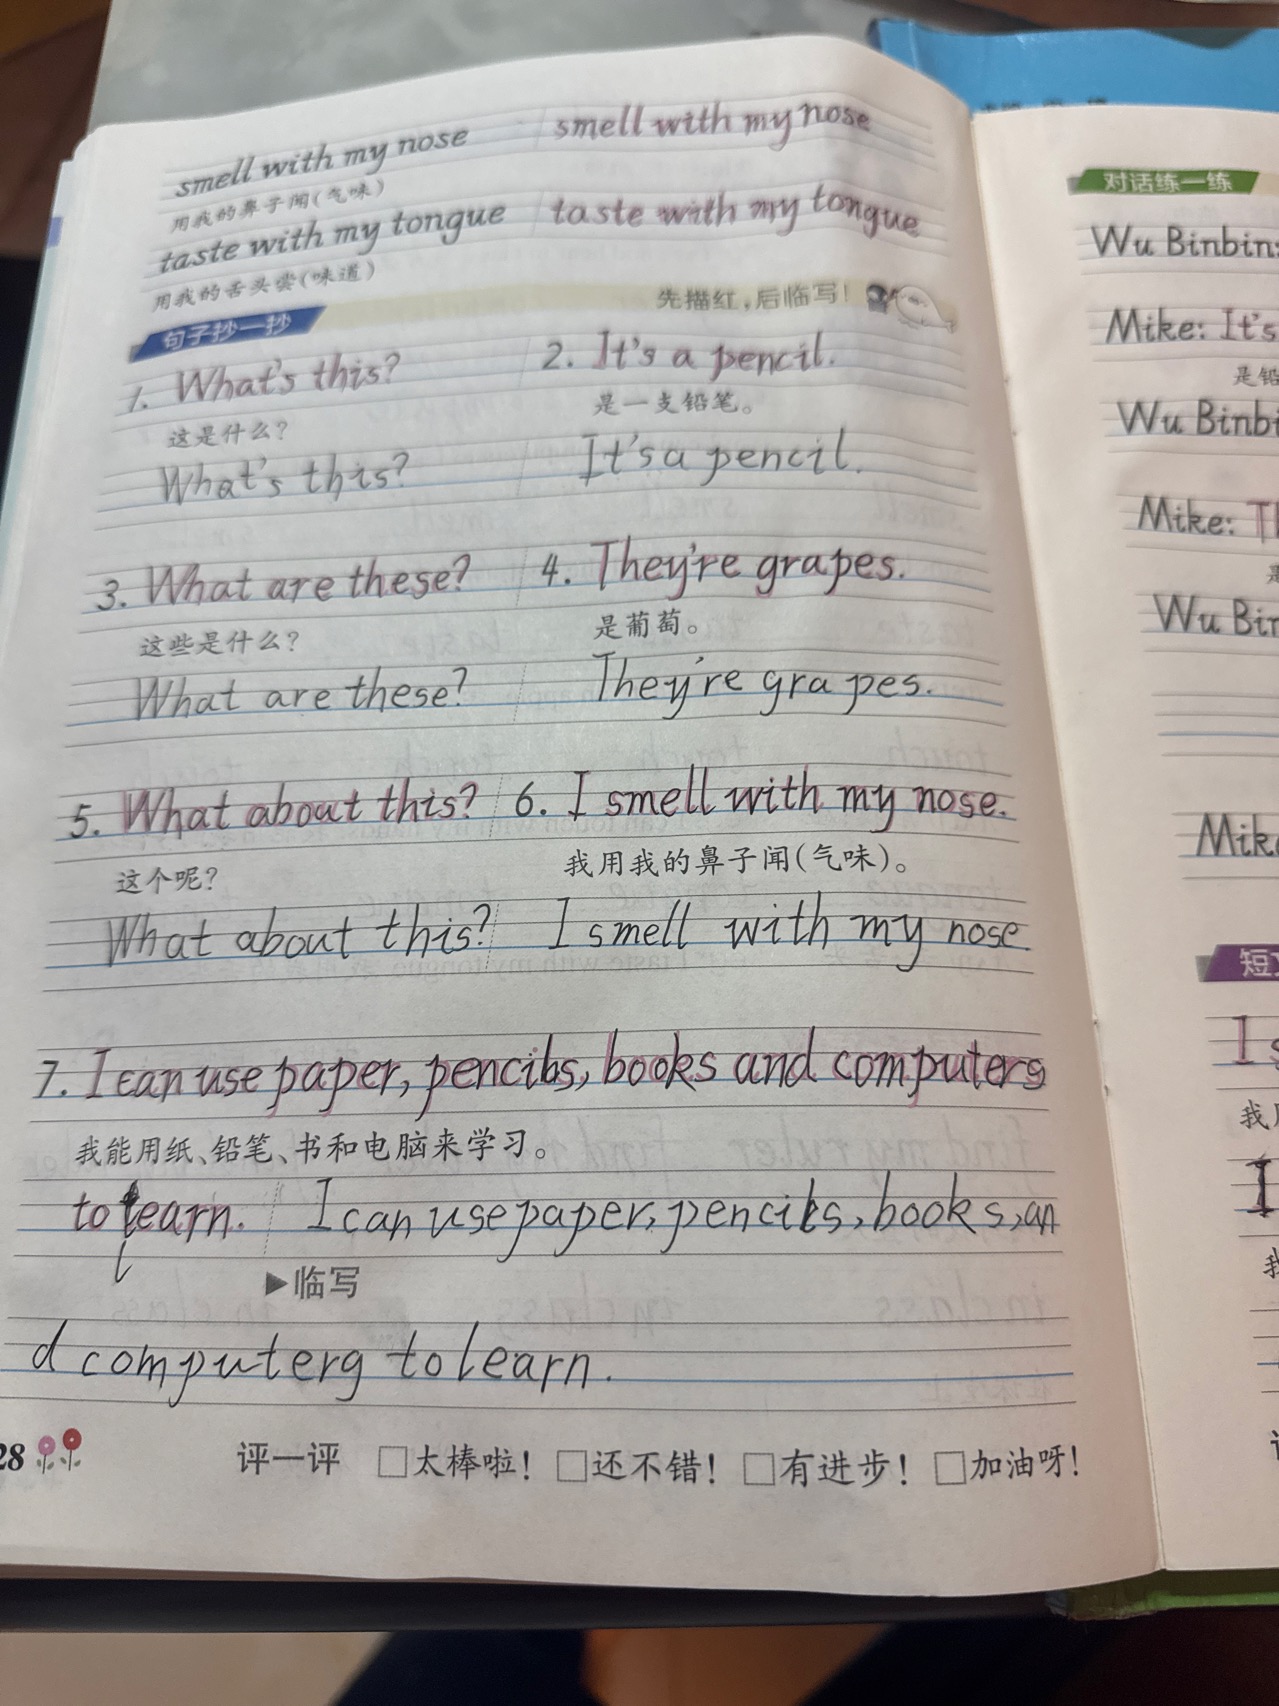 smell with my nose smell with my nose
用我的鼻子闻(气味)
taste with my tongue taste with my tongue
用我的舌头尝(味道)
句子抄一抄 先描红,后临写!
1. What's this? 2. It's a pencil.
这是什么? 是一支铅笔。
What's this? It's a pencil.
3. What are these? 4. They're grapes.
这些是什么? 是葡萄。
What are these? They're grapes.
5. What about this? 6. I smell with my nose.
这个呢? 我用我的鼻子闻(气味)。
What about this? I smell with my nose.
7. I can use paper, pencils, books and computers
我能用纸、铅笔、书和电脑来学习。
to learn. I can use paper, pencils, books, an
▶临写
d computerg to learn.
28 评一评 □太棒啦! □还不错! □有进步! □加油呀!
对话练一练
Wu Binbin:
Mike: It's
是铅
Wu Binbi
Mike: Th
是
Wu Bin
Mike
短文
I s
我用
I
我